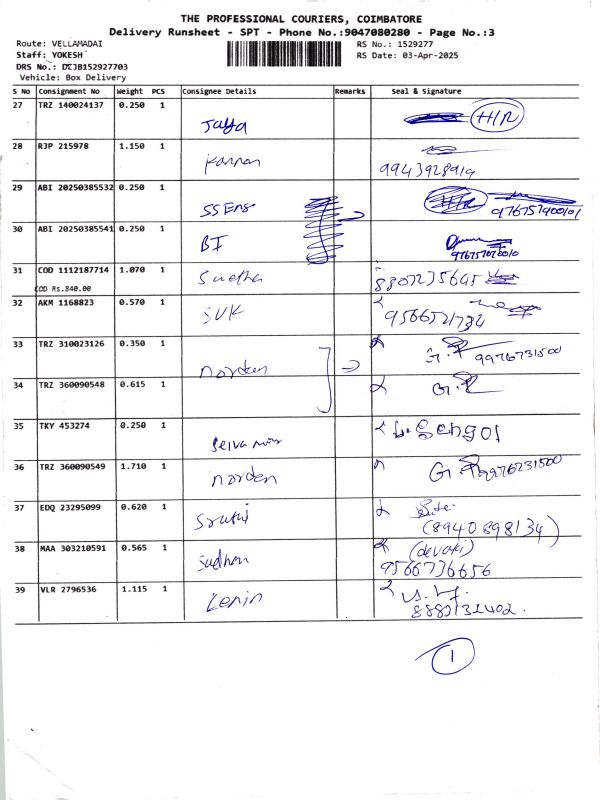 THE PROFESSIONAL COURIERS, COIMBATORE
Delivery Runsheet - SPT - Phone No.:9047080280 - Page No.:3
Route: VELLAMADAI
RS No.: 1529277
Staff: YOKESH
RS Date: 03-Apr-2025
DRS No.: DCJB152927703
Vehicle: Box Delivery
S No Consignment No Weight PCS Consignee Details Remarks Seal & Signature
27 TRZ 140024137 0.250 1 Jaya H/R
28 RJP 215978 1.150 1 Kannan
9943928919
29 ABI 20250385532 0.250 1 SS Engg H/R
30 ABI 20250385541 0.250 1 BI
31 COD 1112187714 1.070 1 Sudha 8807235645
COD Rs.840.00
32 AKM 1168823 0.570 1 SVK 9566521734
33 TRZ 310023126 0.350 1 norden 9976731500
34 TRZ 360090548 0.615 1
35 TKY 453274 0.250 1
36 TRZ 360090549 1.710 1 norden 9976231500
37 EDQ 23295099 0.620 1 Sruthi
(8940898134)
38 MAA 303210591 0.565 1 Sudhan (devaki)
9566736656
39 VLR 2796536 1.115 1 Lenin
1